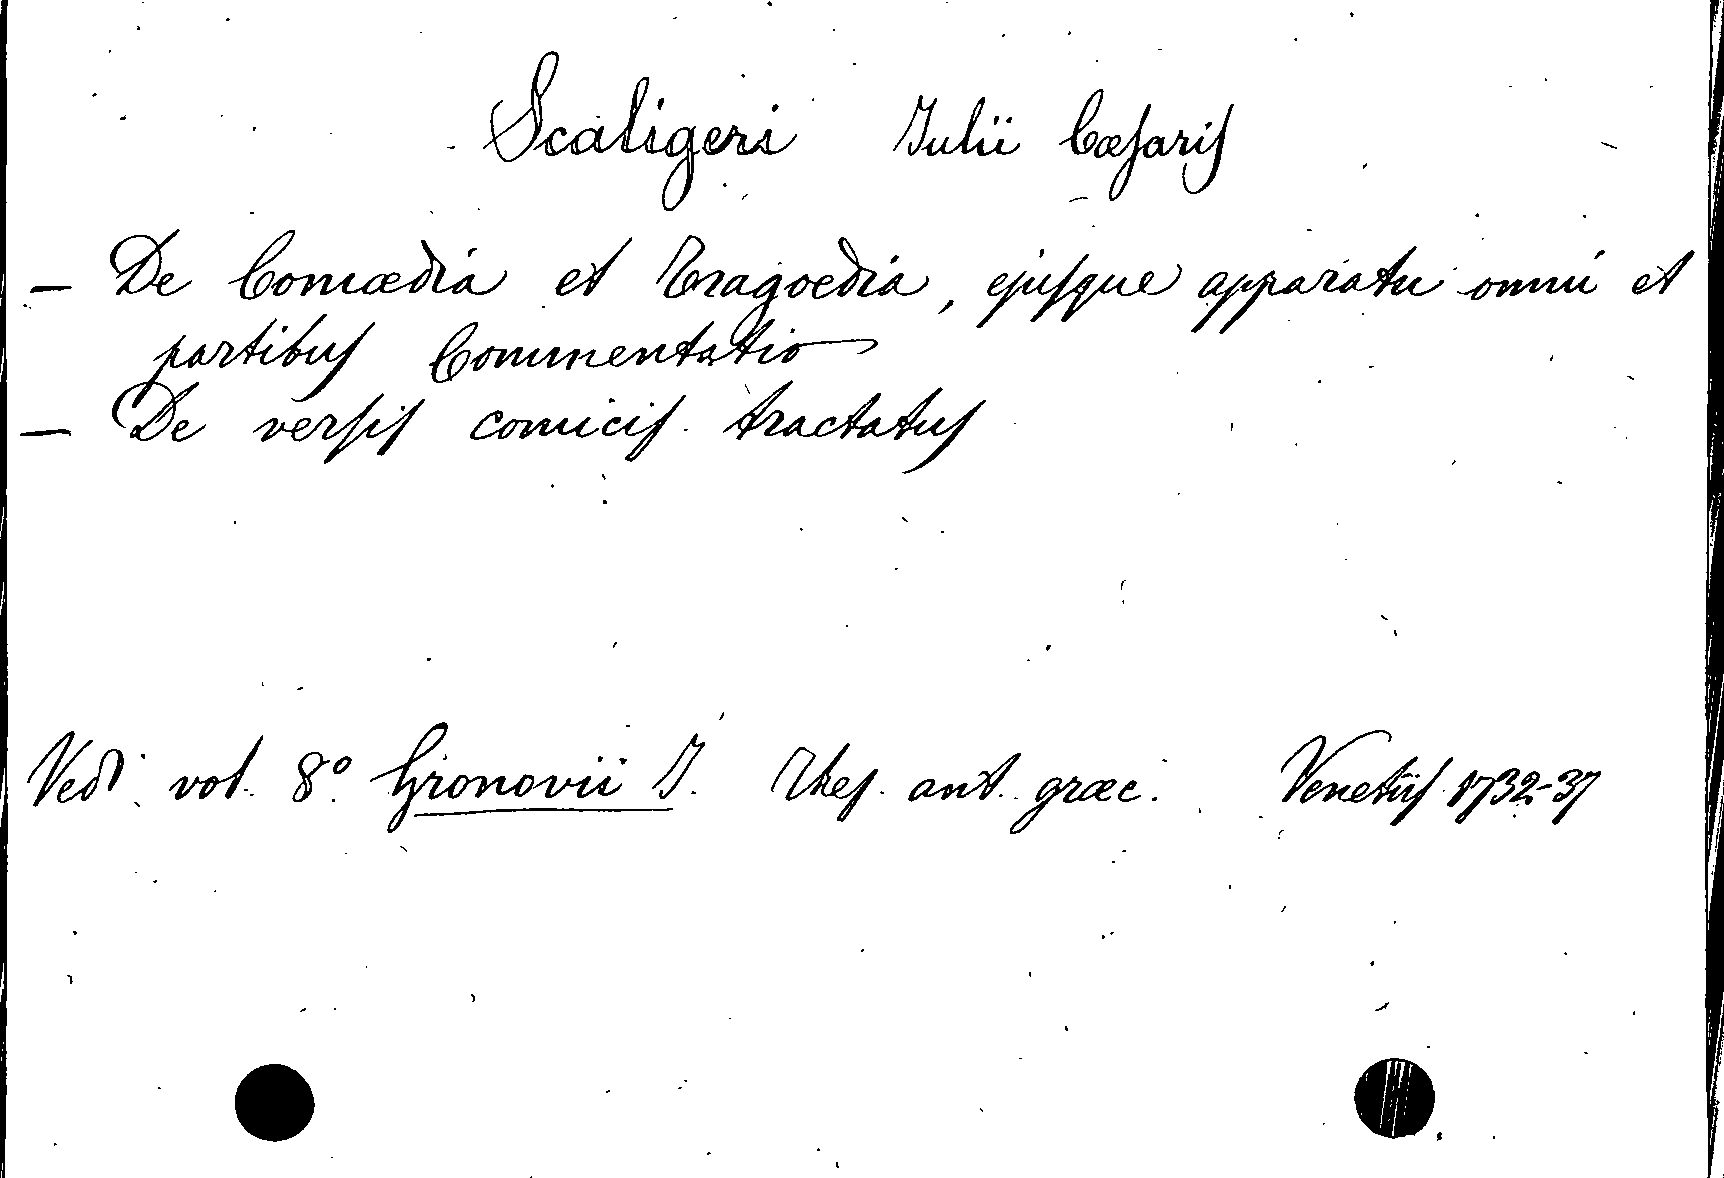 Scaligeri Julii Cæsaris
— De Comædia et Tragoedia, ejusque apparatu omni et
partibus Commentatio
— De versis comicis tractatus
Vedi vol. 8º Gronovii J. Thes. ant. græc. Venetiis 1732-37